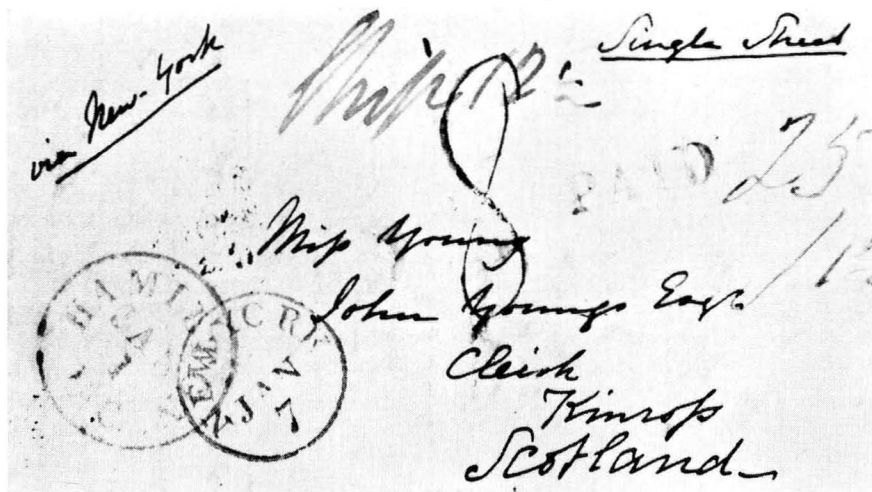 via New-York
Ship 12
Single Sheet
8
PAID 25
Miss Young
John Youngs Esqr
Cleish
Kinross
Scotland
HAMIL
NEW YORK
JAN
7